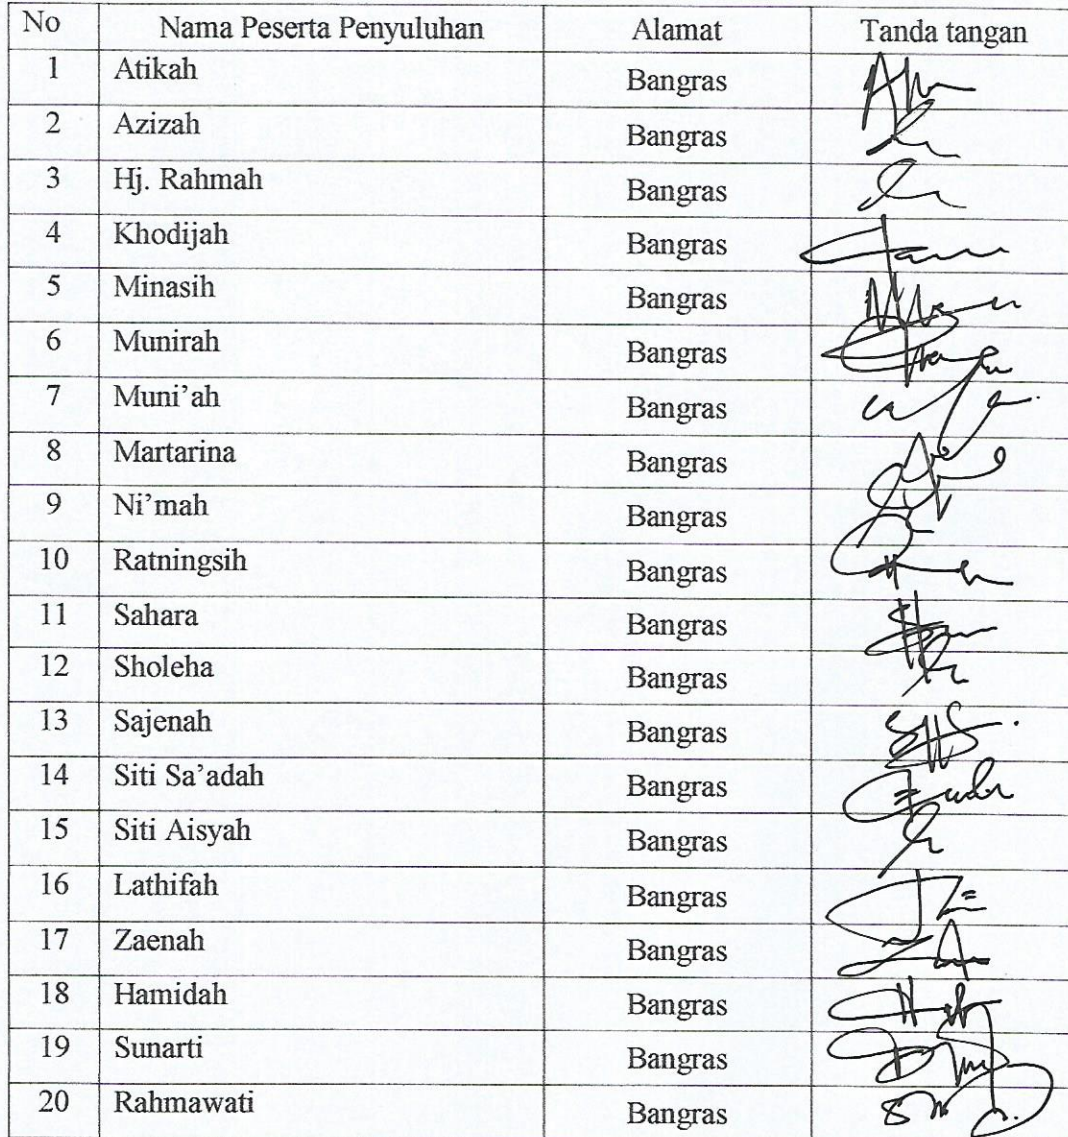 No Nama Peserta Penyuluhan Alamat Tanda tangan
1 Atikah Bangras
2 Azizah Bangras
3 Hj. Rahmah Bangras
4 Khodijah Bangras
5 Minasih Bangras
6 Munirah Bangras
7 Muni’ah Bangras
8 Martarina Bangras
9 Ni’mah Bangras
10 Ratningsih Bangras
11 Sahara Bangras
12 Sholeha Bangras
13 Sajenah Bangras
14 Siti Sa’adah Bangras
15 Siti Aisyah Bangras
16 Lathifah Bangras
17 Zaenah Bangras
18 Hamidah Bangras
19 Sunarti Bangras
20 Rahmawati Bangras